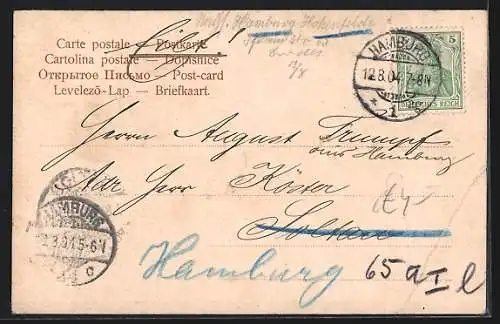 Carte postale — Postkarte
Cartolina postale — Dopisnice
Открытое Письмо — Post-card
Levelező-Lap — Briefkaart.
Eilt!
Hamburg Hohenfelde
HAMBURG
12.8.04. 7-8N
1
5
DEUTSCHES REICH
Herrn August Trumpf
aus Hamburg
adr Herr Köster
Soltau
HAMBURG
Hamburg 65 a I l